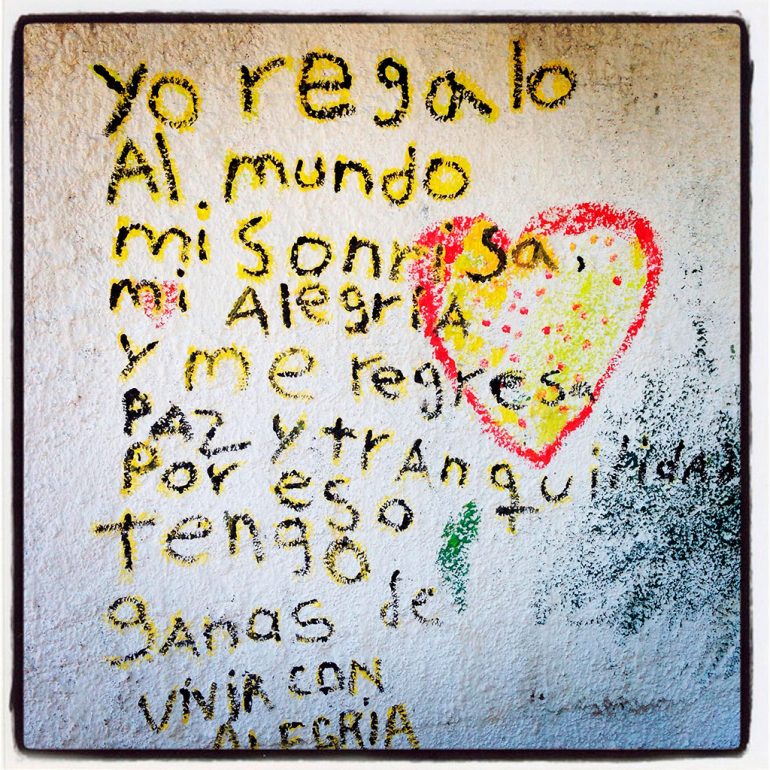 Yo regalo
Al mundo
mi sonrisa,
mi Alegria
y me regresa
PAZ y trAnquilidad
Por eso
tengo
gAnas de
VIVIR CON
ALEGRIA